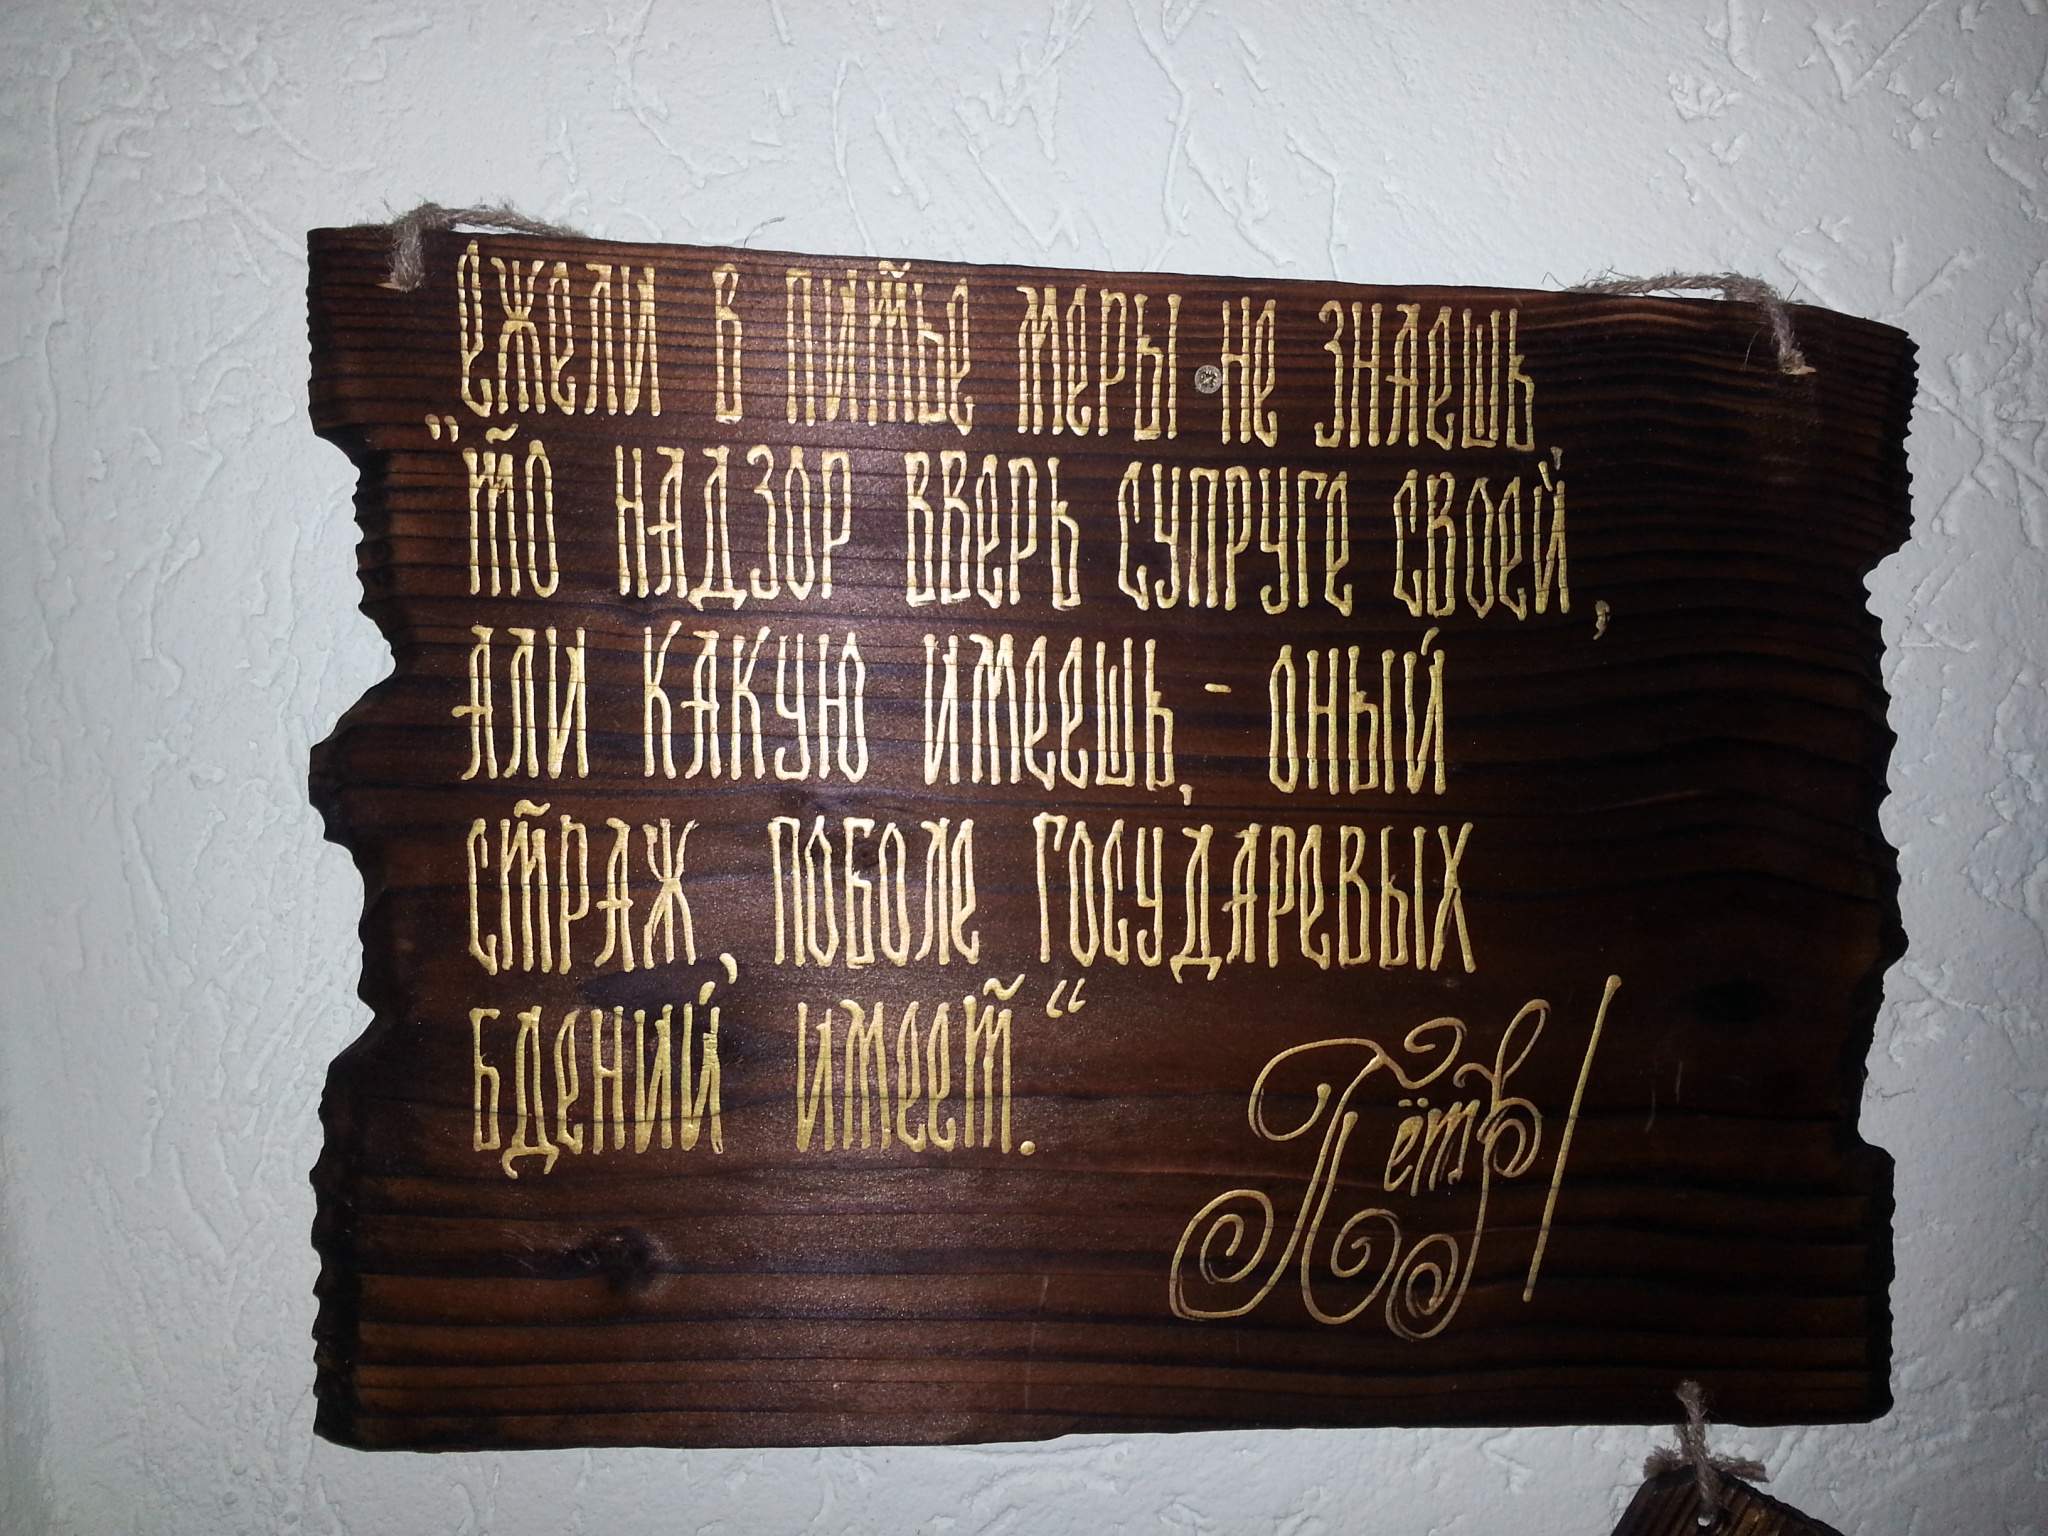 Ежели в питье меры не знаешь,
"то надзор вверь супруге своей,
али какую имеешь, - оный
страж, поболе государевых
бдений имеет."
Пётръ I